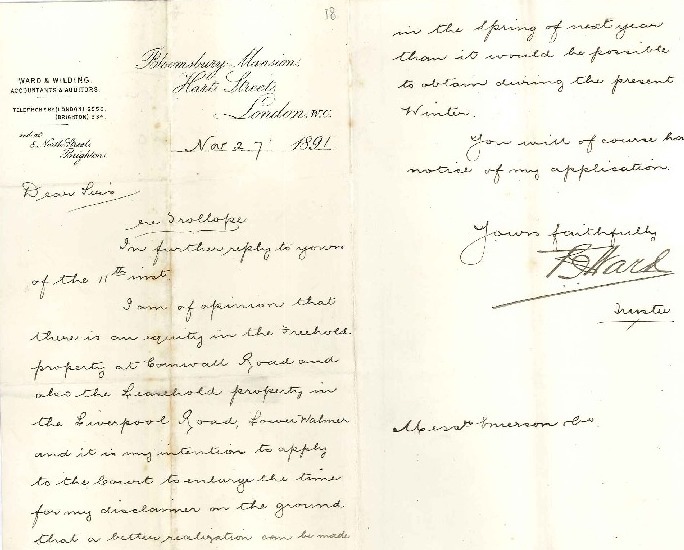 18
WARD & WILDING,
ACCOUNTANTS & AUDITORS.
TELEPHONE NO (LONDON)
(BRIGHTON)
and at
8, North Street,
Brighton.
Bloomsbury Mansions,
Hart Street,
London, W.C.
Nov 27 1891
Dear Sirs
re Trollope
In further reply to yours
of the 11th inst.
I am of opinion that
there is an equity in the Freehold
property at Cornwall Road and
also the Leasehold property in
the Liverpool Road, Lower Walmer
and it is my intention to apply
to the Court to enlarge the time
for my disclaimer on the ground
that a better realization can be made
in the Spring of next year
than it would be possible
to obtain during the present
Winter.
You will of course ha
notice of my application.
Yours faithfully
Ward
Trustee
Messrs Emerson & Co